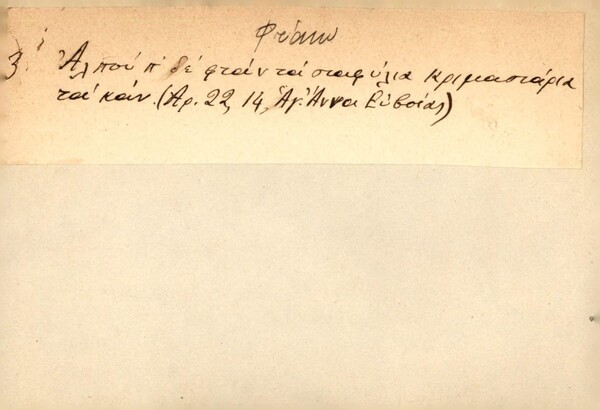 Φτάνω
3 Ἀλποὺ π' δὲ φτάν' τὰ σταφύλια κριμαστάρια
τὰ κάν. (Ἀρ. 22, 14, Ἁγ. Ἄννα Εὐβοίας)